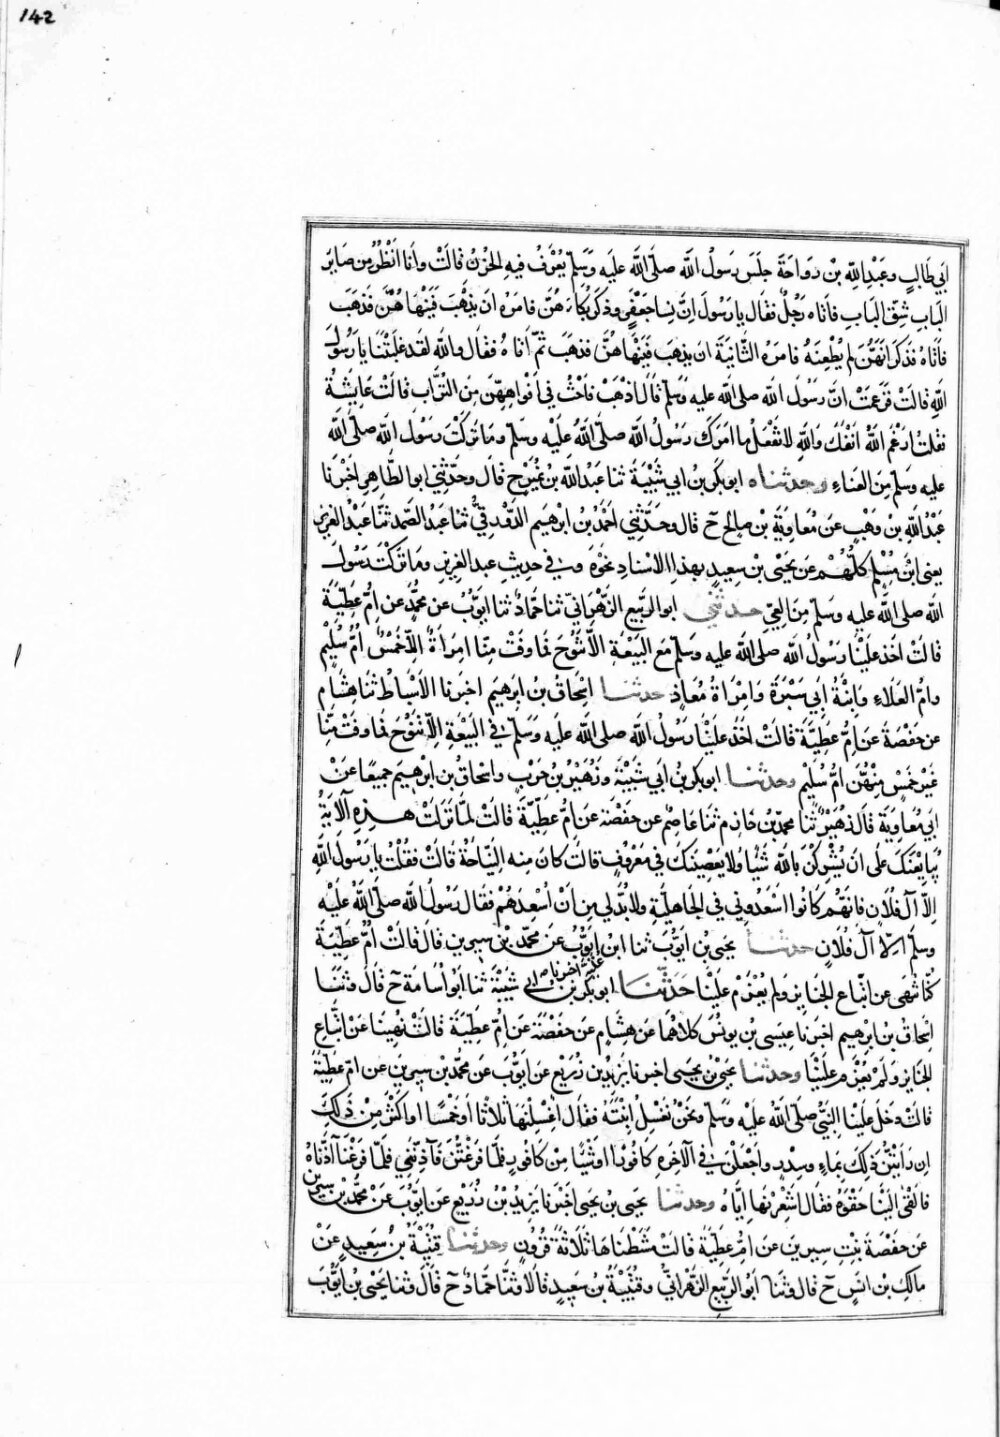 142
ابي طالب وعبد الله بن رواحة جلس رسول الله صلى الله عليه وسلم يعرف فيه الحزن قالت وانا انظر من صاير
الباب شق الباب فاتاه رجل فقال يا رسول ان نسا جعفر وذكر بكاءهن فامره ان يذهب فينهاهن فذهب
فاتاه فذكر انهن لم يطعنه فامره الثانية ان يذهب فينهاهن فذهب ثم اتاه فقال والله لقد غلبننا يا رسول
الله قالت فزعمت ان رسول الله صلى الله عليه وسلم قال اذهب فاحث في افواههن من التراب قالت عايشة
فقلت ارغم الله انفك والله لا تفعل ما امرك رسول الله صلى الله عليه وسلم وما تركت رسول الله صلى الله
عليه وسلم من العناء وحدثناه ابو بكر بن ابي شيبة ثنا عبد الله بن نمير ح قال وحدثني ابو الطاهر اخبرنا
عبد الله بن وهب عن معاوية بن صالح ح قال وحدثني احمد بن ابرهيم الدورقي ثنا عبد الصمد ثنا عبد العزيز
يعني ابن مسلم كلهم عن يحيى بن سعيد بهذا الاسناد نحوه وفي حديث عبد العزيز وما تركت رسول
الله صلى الله عليه وسلم من العي حدثني ابو الربيع الزهراني ثنا حماد ثنا ايوب عن محمد عن ام عطية
قالت اخذ علينا رسول الله صلى الله عليه وسلم مع البيعة الا ننوح فما وفت منا امراة الا خمس ام سليم
وام العلاء وابنة ابي سبرة وامراة معاذ حدثنا اسحاق بن ابرهيم اخبرنا الاسباط ثنا هشام
عن حفصة عن ام عطية قالت اخذ علينا رسول الله صلى الله عليه وسلم في البيعة الا ننوح فما وفت منا
غير خمس منهن ام سليم وحدثنا ابو بكر بن ابي شيبة وزهير بن حرب واسحاق بن ابرهيم جميعا عن
ابي معاوية قال زهير ثنا محمد بن خازم ثنا عاصم عن حفصة عن ام عطية قالت لما نزلت هذه الآية
يبايعنك على ان لا يشركن بالله شيئا ولا يعصينك في معروف قالت كان منه النياحة قالت فقلت يا رسول الله
الا آل فلان فانهم كانوا اسعدوني في الجاهلية ولا بد لي من ان اسعدهم فقال رسول الله صلى الله عليه
وسلم الا آل فلان حدثنا يحيى بن ايوب ثنا ابن علية اخبرنا ايوب عن محمد بن سيرين قال قالت ام عطية
كنا ننهى عن اتباع الجنايز ولم يعزم علينا حدثنا ابو بكر بن ابي شيبة ثنا ابو اسامة ح قال وثنا
اسحاق بن ابرهيم اخبرنا عيسى بن يونس كلاهما عن هشام عن حفصة عن ام عطية قالت نهينا عن اتباع
الجنايز ولم يعزم علينا وحدثنا يحيى بن يحيى اخبرنا يزيد بن زريع عن ايوب عن محمد بن سيرين عن ام عطية
قالت دخل علينا النبي صلى الله عليه وسلم ونحن نغسل ابنته فقال اغسلنها ثلاثا او خمسا او اكثر من ذلك
ان رايتن ذلك بماء وسدر واجعلن في الآخرة كافورا او شيئا من كافور فاذا فرغتن فآذنني فلما فرغنا آذناه
فالقى الينا حقوه فقال اشعرنها اياه وحدثنا يحيى بن يحيى اخبرنا يزيد بن زريع عن ايوب عن محمد بن سيرين
عن حفصة بنت سيرين عن ام عطية قالت مشطناها ثلاثة قرون وحدثنا قتيبة بن سعيد عن
مالك بن انس ح قال وثنا ابو الربيع الزهراني وقتيبة بن سعيد قالا وثنا حماد ح قال وثنا يحيى بن ايوب